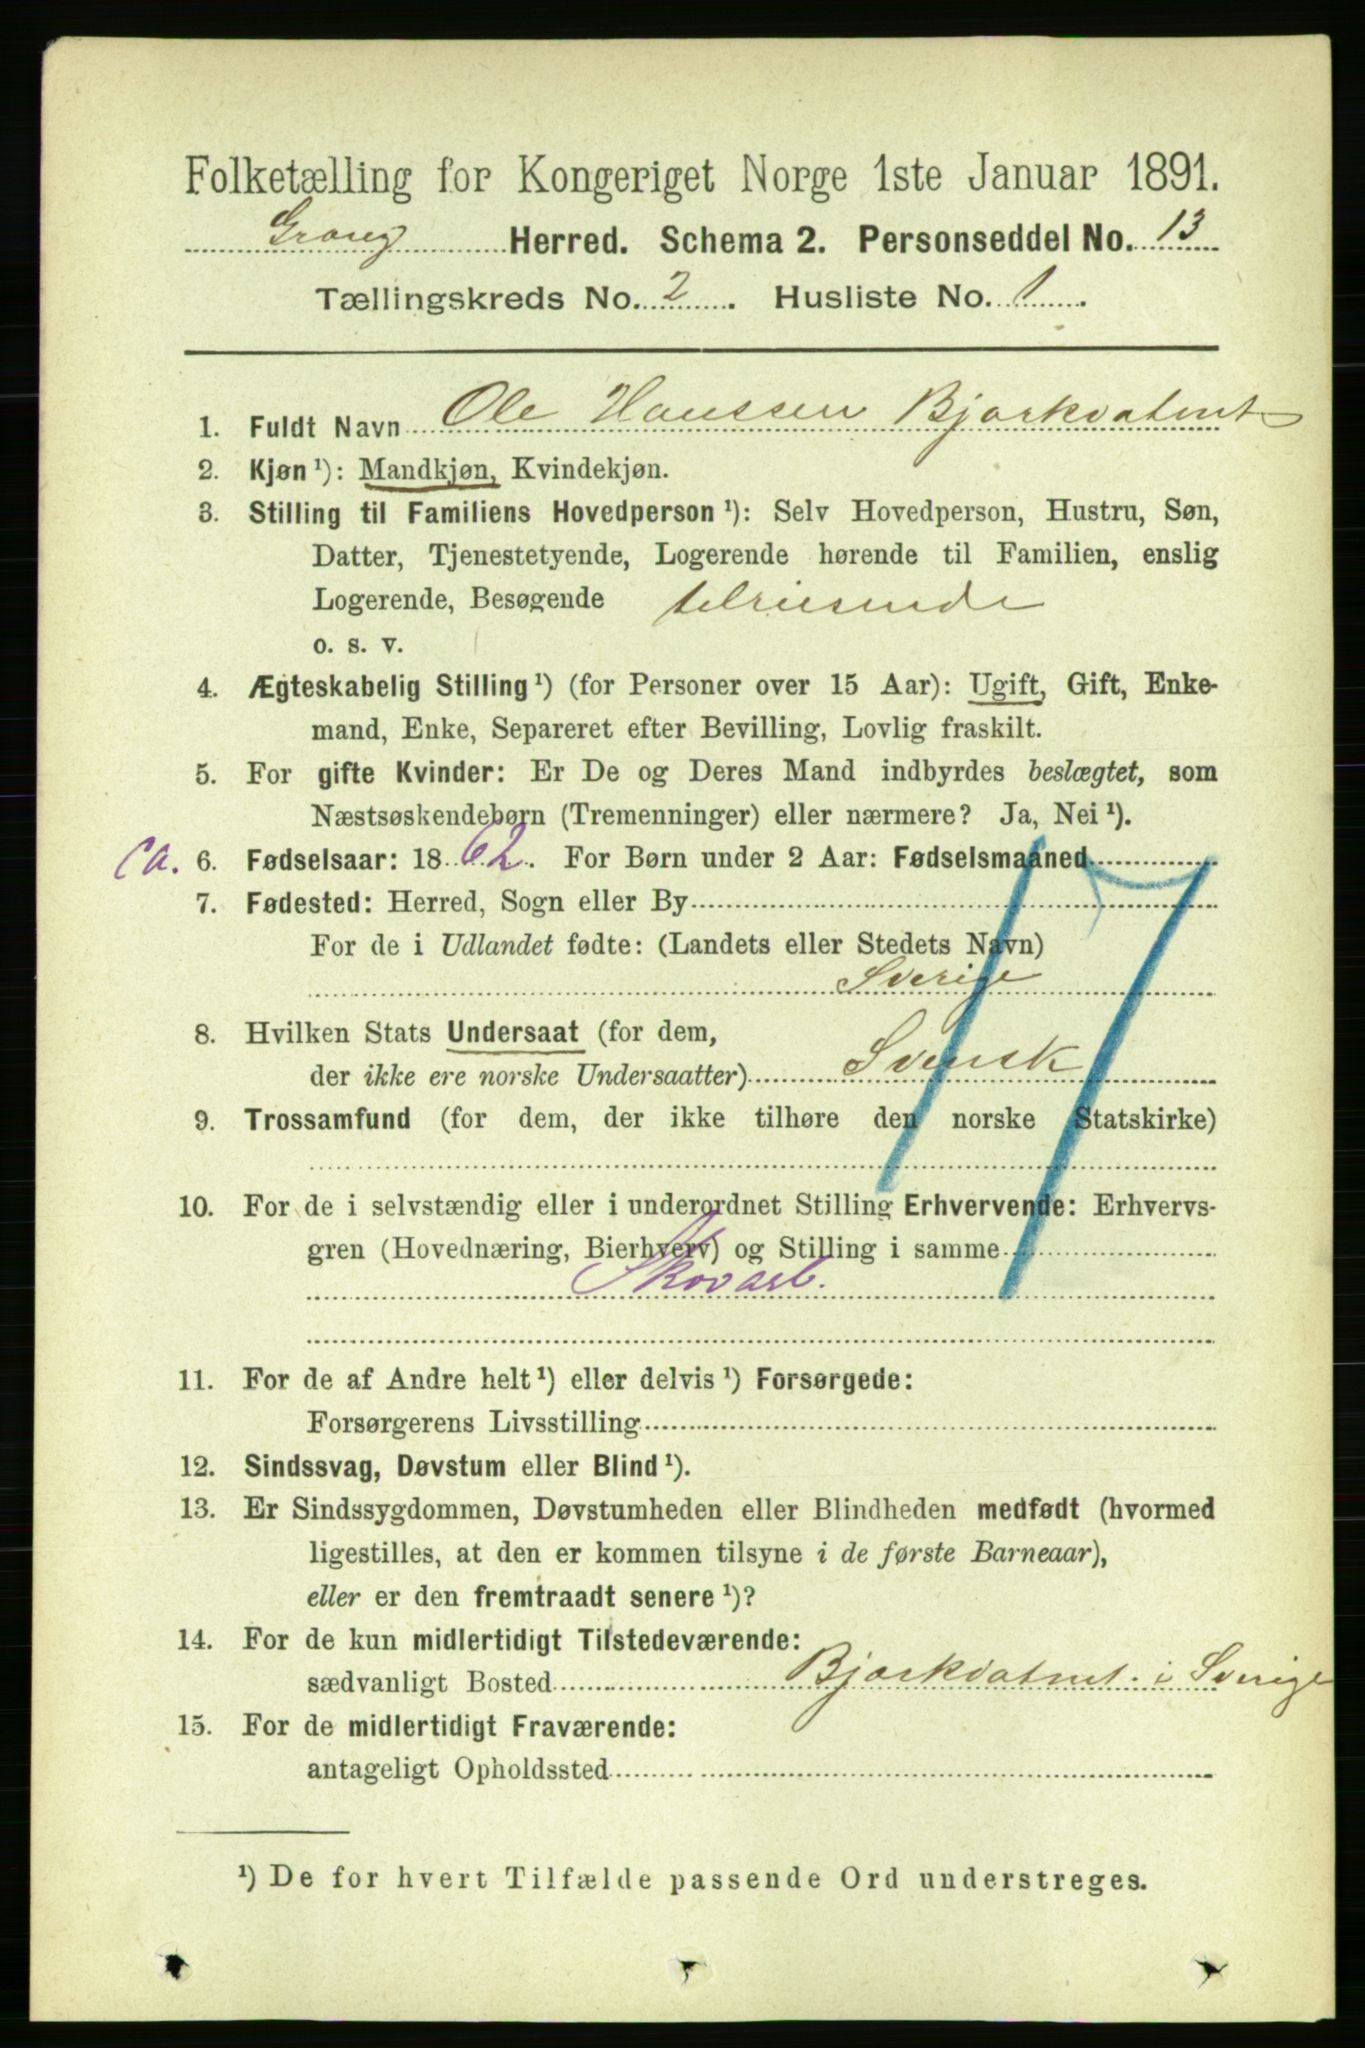 Folketælling for Kongeriget Norge 1ste Januar 1891.
Grong Herred. Schema 2. Personseddel No. 13
Tællingskreds No. 2. Husliste No. 1.
1. Fuldt Navn Ole Hanssen Bjorkvatnet
2. Kjøn ¹): Mandkjøn, Kvindekjøn.
3. Stilling til Familiens Hovedperson ¹): Selv Hovedperson, Hustru, Søn,
Datter, Tjenestetyende, Logerende hørende til Familien, enslig
Logerende, Besøgende tilreisende
o. s. v.
4. Ægteskabelig Stilling ¹) (for Personer over 15 Aar): Ugift, Gift, Enke-
mand, Enke, Separeret efter Bevilling, Lovlig fraskilt.
5. For gifte Kvinder: Er De og Deres Mand indbyrdes beslægtet, som
Næstsøskendebørn (Tremenninger) eller nærmere? Ja, Nei ¹).
ca. 6. Fødselsaar: 1862. For Børn under 2 Aar: Fødselsmaaned
7. Fødested: Herred, Sogn eller By
For de i Udlandet fødte: (Landets eller Stedets Navn)
Sverige
8. Hvilken Stats Undersaat (for dem,
der ikke ere norske Undersaatter) Svensk
9. Trossamfund (for dem, der ikke tilhøre den norske Statskirke)
10. For de i selvstændig eller i underordnet Stilling Erhvervende: Erhvervs-
gren (Hovednæring, Bierhverv) og Stilling i samme
Skovarb.
11. For de af Andre helt ¹) eller delvis ¹) Forsørgede:
Forsørgerens Livsstilling
12. Sindssvag, Døvstum eller Blind ¹).
13. Er Sindssygdommen, Døvstumheden eller Blindheden medfødt (hvormed
ligestilles, at den er kommen tilsyne i de første Barneaar),
eller er den fremtraadt senere ¹)?
14. For de kun midlertidigt Tilstedeværende:
sædvanligt Bosted Bjorkvatnet i Sverige
15. For de midlertidigt Fraværende:
antageligt Opholdssted
¹) De for hvert Tilfælde passende Ord understreges.